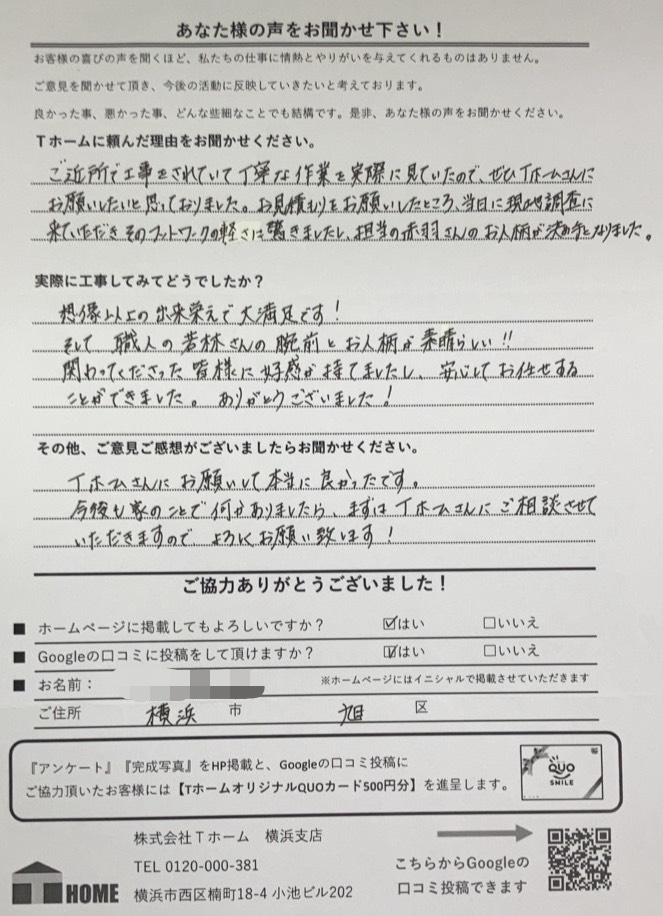 あなた様の声をお聞かせ下さい！
お客様の喜びの声を聞くほど、私たちの仕事に情熱とやりがいを与えてくれるものはありません。
ご意見を聞かせて頂き、今後の活動に反映していきたいと考えております。
良かった事、悪かった事、どんな些細なことでも結構です。是非、あなた様の声をお聞かせください。
Tホームに頼んだ理由をお聞かせください。
ご近所で工事をされていて丁寧な作業を実際に見ていたので、ぜひTホームさんに
お願いしたいと思っておりました。お見積もりをお願いしたところ、当日に現地調査に
来ていただきそのフットワークの軽さに驚きましたし、担当の赤羽さんのお人柄が決め手となりました。
実際に工事してみてどうでしたか？
想像以上の出来栄えで大満足です！
そして 職人の若林さんの腕前とお人柄が素晴らしい!!
関わってくださった皆様に好感が持てましたし、安心してお任せする
ことができました。ありがとうございました！
その他、ご意見ご感想がございましたらお聞かせください。
Tホームさんにお願いして本当に良かったです。
今後も家のことで何かありましたら、まずはTホームさんにご相談させて
いただきますので よろしくお願い致します！
ご協力ありがとうございました！
■ ホームページに掲載してもよろしいですか？ ☑はい □いいえ
■ Googleの口コミに投稿をして頂けますか？ ☑はい □いいえ
■ お名前： ※ホームページにはイニシャルで掲載させていただきます
ご住所 横浜 市 旭 区
『アンケート』『完成写真』をHP掲載と、Googleの口コミ投稿に
ご協力頂いたお客様には【TホームオリジナルQUOカード500円分】を進呈します。
QUO
SMILE
株式会社Tホーム 横浜支店
TEL 0120-000-381
横浜市西区楠町18-4 小池ビル202
HOME
こちらからGoogleの
口コミ投稿できます